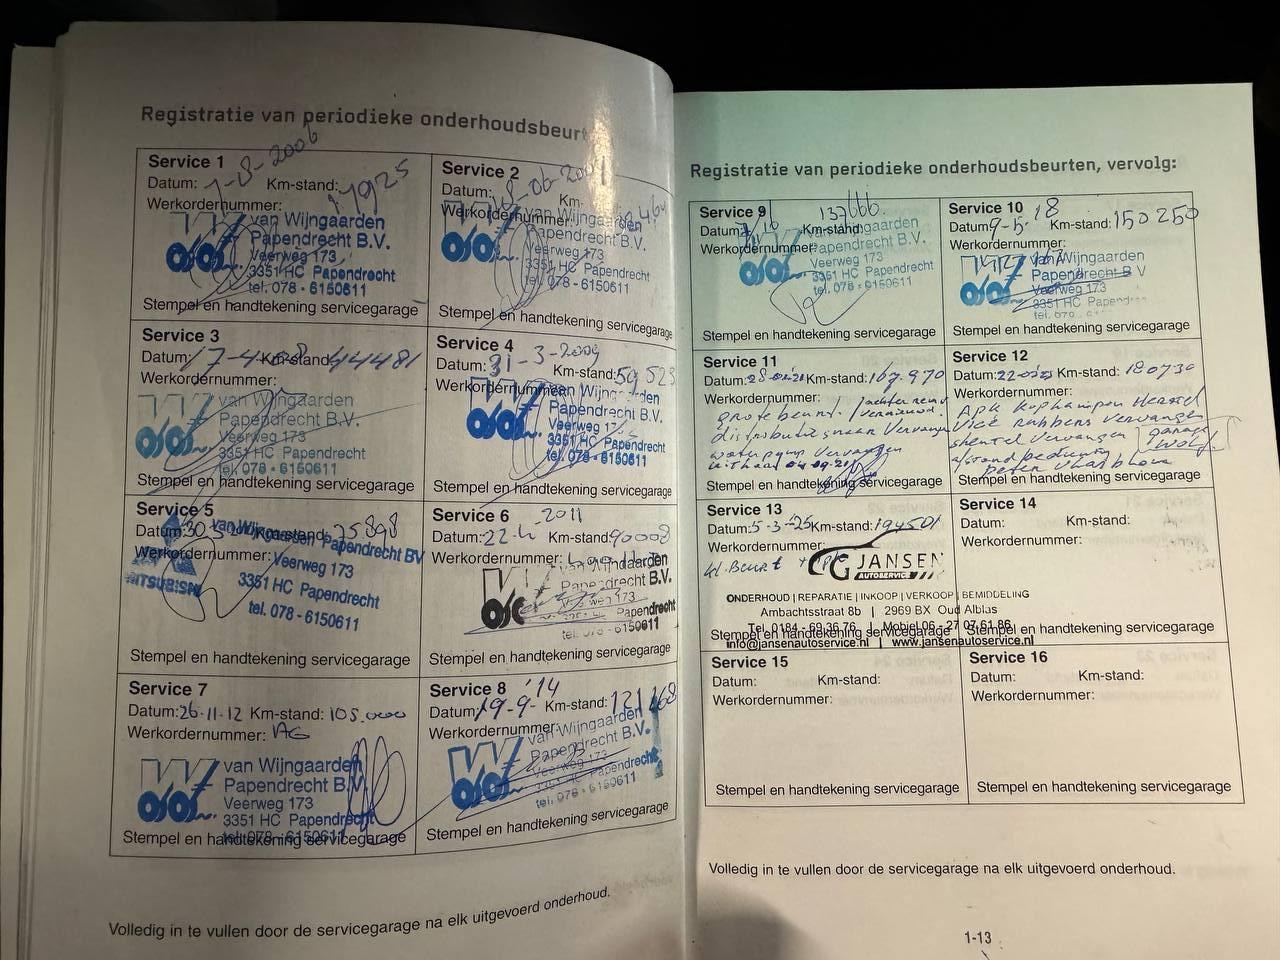 Registratie van periodieke onderhoudsbeurt
Service 1
Datum: 1-8-2006 Km-stand:
Werkordernummer:
van Wijngaarden
Papendrecht B.V.
Veerweg 173
3351 HC Papendrecht
tel. 078 - 6150611
Stempel en handtekening servicegarage
Service 2
Datum:
Km.
Werkordernummer:
van Wijngaarden
Papendrecht B.V.
Veerweg 173
3351 HC Papendrecht
tel. 078 - 6150611
Stempel en handtekening servicegarage
Service 3
Datum: 17-4-08 Km-stand 44481
Werkordernummer:
van Wijngaarden
Papendrecht B.V.
Veerweg 173
3351 HC Papendrecht
tel. 078 - 6150611
Stempel en handtekening servicegarage
Service 4
Datum: 31-3-2009
Km-stand: 59523
Werkordernummer:
van Wijngaarden
Papendrecht B.V.
Veerweg 173
3351 HC Papendrecht
tel. 078 - 6150611
Stempel en handtekening servicegarage
Service 5
Datum: Km-stand: 75898
Werkordernummer:
van Wijngaarden Papendrecht BV
Veerweg 173
3351 HC Papendrecht
tel. 078-6150611
MITSUBISHI
Stempel en handtekening servicegarage
Service 6
Datum: 22-4-2011 Km-stand: 90008
Werkordernummer:
Papendrecht B.V.
Veerweg 173
Papendrecht
tel. 078 - 6150611
Stempel en handtekening servicegarage
Service 7
Datum: 26-11-12 Km-stand: 105.000
Werkordernummer: AG
van Wijngaarden
Papendrecht B.V.
Veerweg 173
3351 HC Papendrecht
tel. 078 - 6150611
Stempel en handtekening servicegarage
Service 8
Datum: 19-9-'14 Km-stand: 121168
Werkordernummer:
van Wijngaarden
Papendrecht B.V.
Veerweg 173
3351 HC Papendrecht
tel. 078 - 6150611
Stempel en handtekening servicegarage
Volledig in te vullen door de servicegarage na elk uitgevoerd onderhoud.
Registratie van periodieke onderhoudsbeurten, vervolg:
Service 9
133666.
Datum: Km-stand:
Werkordernummer:
van Wijngaarden
Papendrecht B.V.
Veerweg 173
3351 HC Papendrecht
tel. 078 - 6150611
Stempel en handtekening servicegarage
Service 10
Datum: 9-5-18 Km-stand: 150250
Werkordernummer:
Papendrecht B V
Veerweg 173
3351 HC Papendr
Stempel en handtekening servicegarage
Service 11
Datum: Km-stand: 167.970
Werkordernummer:
grote beurt. achter remmen
vernieuwd.
distributieriem Vervangen
waterpomp Vervangen
Stempel en handtekening servicegarage
Service 12
Datum: Km-stand: 180730
Werkordernummer:
APK Koplampen Herstel
Vervangen
Vervangen garage
Wolf
Stempel en handtekening servicegarage
Service 13
Datum: 5-3-25 Km-stand: 194501
Werkordernummer:
kl. Beurt + APK
CG JANSEN
AUTOSERVICE
ONDERHOUD | REPARATIE | INKOOP | VERKOOP | BEMIDDELING
Ambachtsstraat 8b | 2969 BX Oud Alblas
Tel. 0184 - 69 36 76 | Mobiel 06 - 27 07 61 86
info@jansenautoservice.nl | www.jansenautoservice.nl
Stempel en handtekening servicegarage
Service 14
Datum: Km-stand:
Werkordernummer:
Stempel en handtekening servicegarage
Service 15
Datum: Km-stand:
Werkordernummer:
Stempel en handtekening servicegarage
Service 16
Datum: Km-stand:
Werkordernummer:
Stempel en handtekening servicegarage
Volledig in te vullen door de servicegarage na elk uitgevoerd onderhoud.
1-13